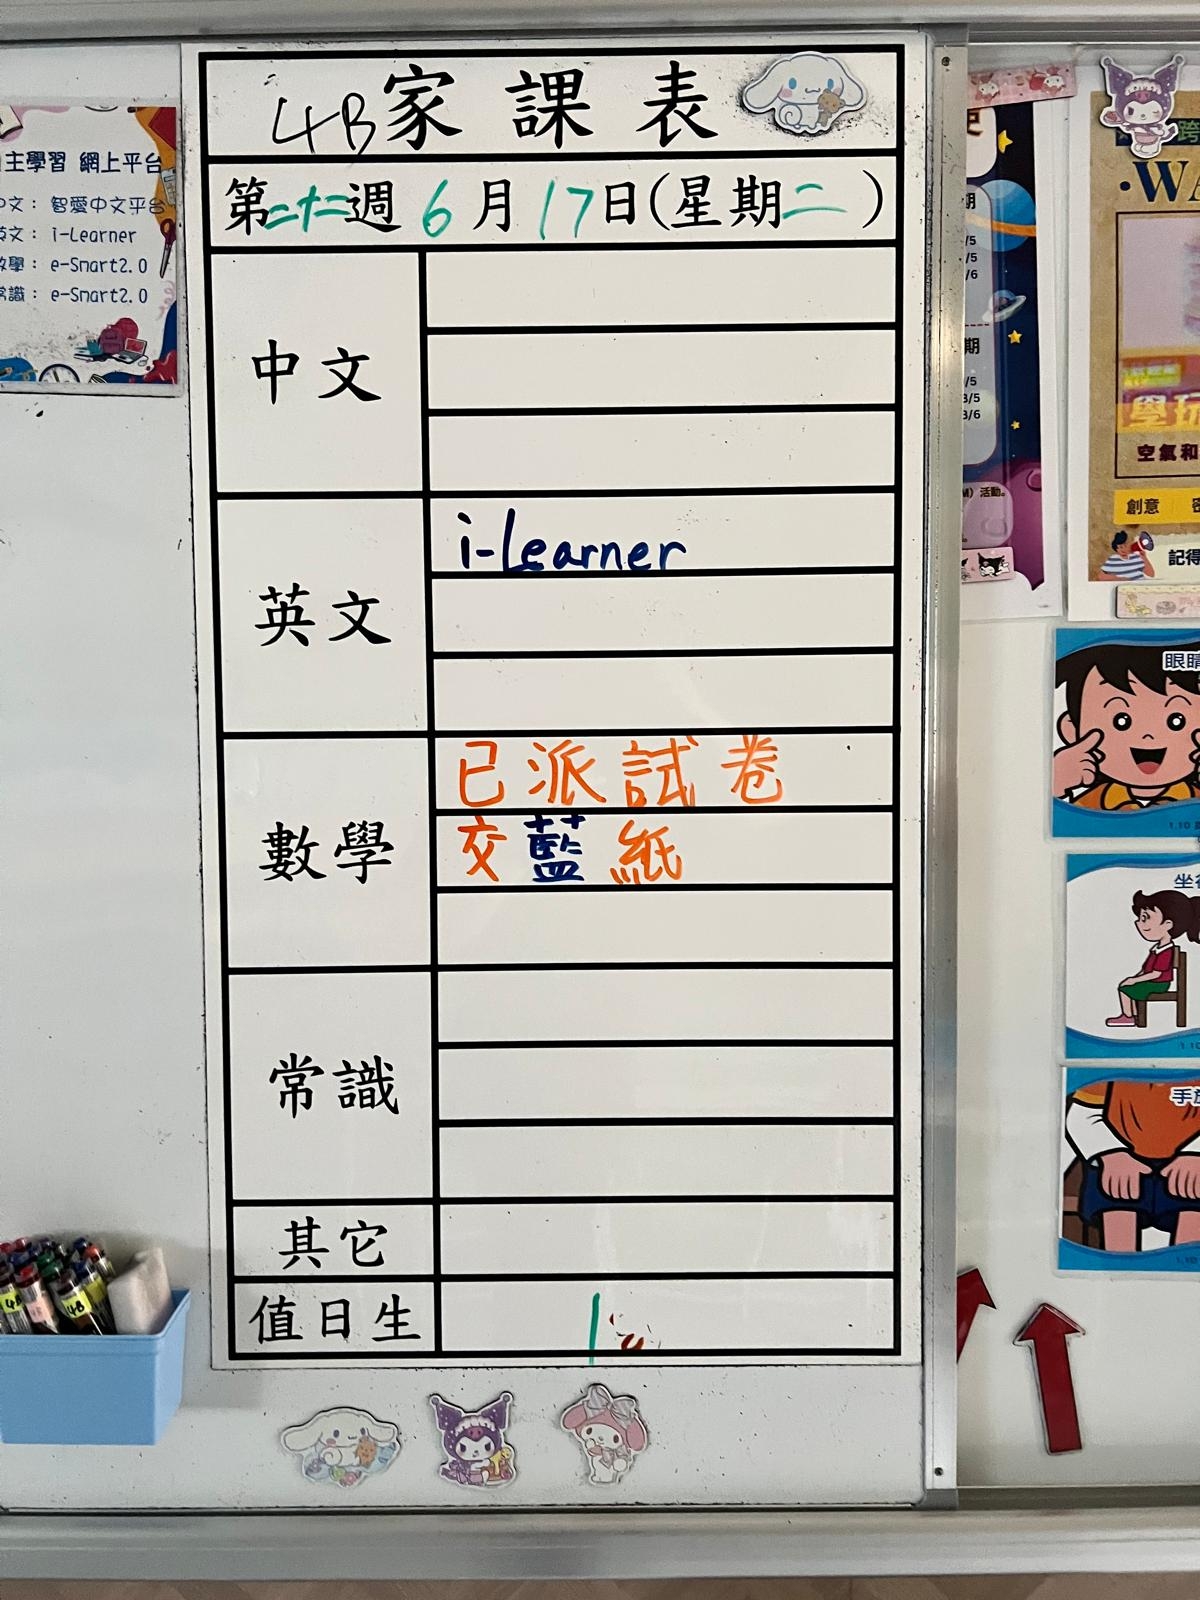 4B家課表
第二十二週 6月17日(星期二)
中文
英文
i-Learner
數學
已派試卷
交藍紙
常識
其它
值日生
1
主學習 網上平台
中文: 智愛中文平台
英文: i-Learner
數學: e-Smart2.0
常識: e-Smart2.0
4B
期
/5
/5
/6
期
/5
3/5
3/6
M) 活動。
跨
·WA
學玩
空氣和
創意
記得
眼睛
1.10
坐
1.10
手放
1.10